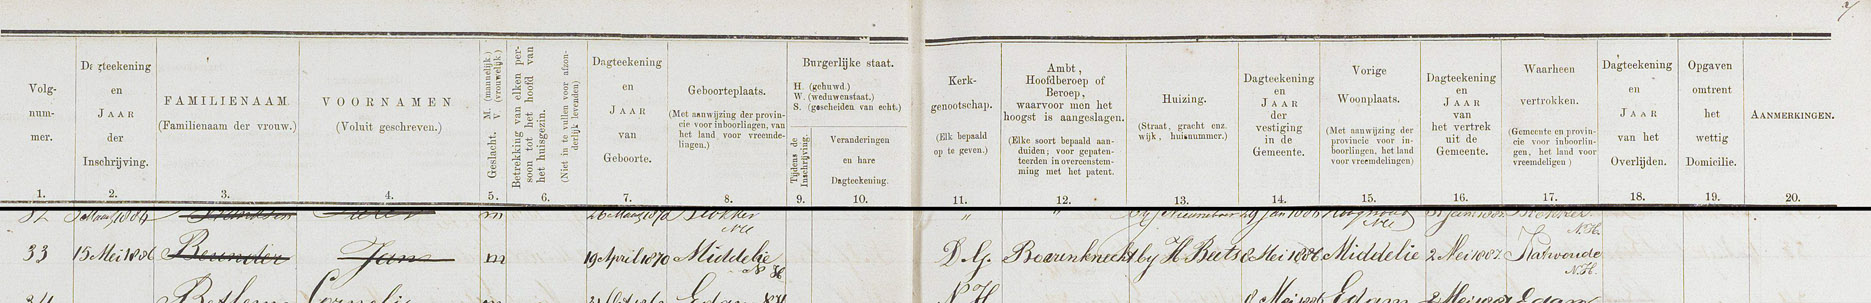 Volg-
num-
mer.
1.
Dagteekening
en
JAAR
der
Inschrijving.
2.
FAMILIENAAM.
(Familienaam der vrouw.)
3.
VOORNAMEN
(Voluit geschreven.)
4.
Geslacht. M. (mannelijk.)
V. (vrouwelijk.)
5.
Betrekking van elken per-
soon tot het hoofd van
het huisgezin.
(Niet in te vullen voor afzon-
derlijk levenden)
6.
Dagteekening
en
JAAR
van
Geboorte.
7.
Geboorteplaats.
(Met aanwijzing der provin-
cie voor inboorlingen, van
het land voor vreemde-
lingen.)
8.
Burgerlijke staat.
H. (gehuwd.)
W. (weduwenstaat.)
S. (gescheiden van echt.)
Tijdens de
Inschrijving.
9.
Veranderingen
en hare
Dagteekening.
10.
Kerk-
genootschap.
(Elk bepaald
op te geven.)
11.
Ambt,
Hoofdberoep of
Beroep,
waarvoor men het
hoogst is aangeslagen.
(Elke soort bepaald aan-
duiden; voor gepaten-
teerden in overeenstem-
ming met het patent.
12.
Huizing.
(Straat, gracht enz.
wijk, huisnummer.)
13.
Dagteekening
en
JAAR
der
vestiging
in de
Gemeente.
14.
Vorige
Woonplaats.
(Met aanwijzing der
provincie voor in-
boorlingen, het land
voor vreemdelingen)
15.
Dagteekening
en
JAAR
van
het vertrek
uit de
Gemeente.
16.
Waarheen
vertrokken.
(Gemeente en provin-
cie voor inboorlin-
gen, het land voor
vreemdeligen )
17.
Dagteekening
en
JAAR
van het
Overlijden.
18.
Opgaven
omtrent
het
wettig
Domicilie.
19.
AANMERKINGEN.
20.
m
33 15 Mei 1886 Beunder Jan m 19 April 1870 Middelie N H D.G. Boerenknecht by H Beets 8 Mei 1886 Middelie 2 Mei 1887 Katwoude N.H.
N H Edam